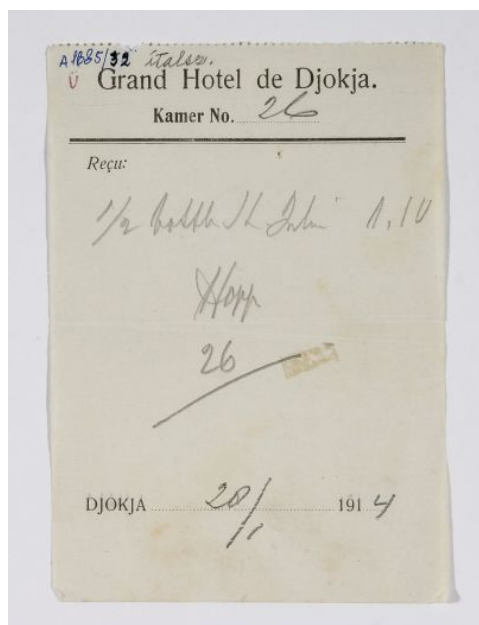 A 1885/32 italsz.
Ü Grand Hotel de Djokja.
Kamer No. 26
Reçu:
1/2 bottle St. Julien 1.10
Hopp
26
DJOKJA 28/11 1914